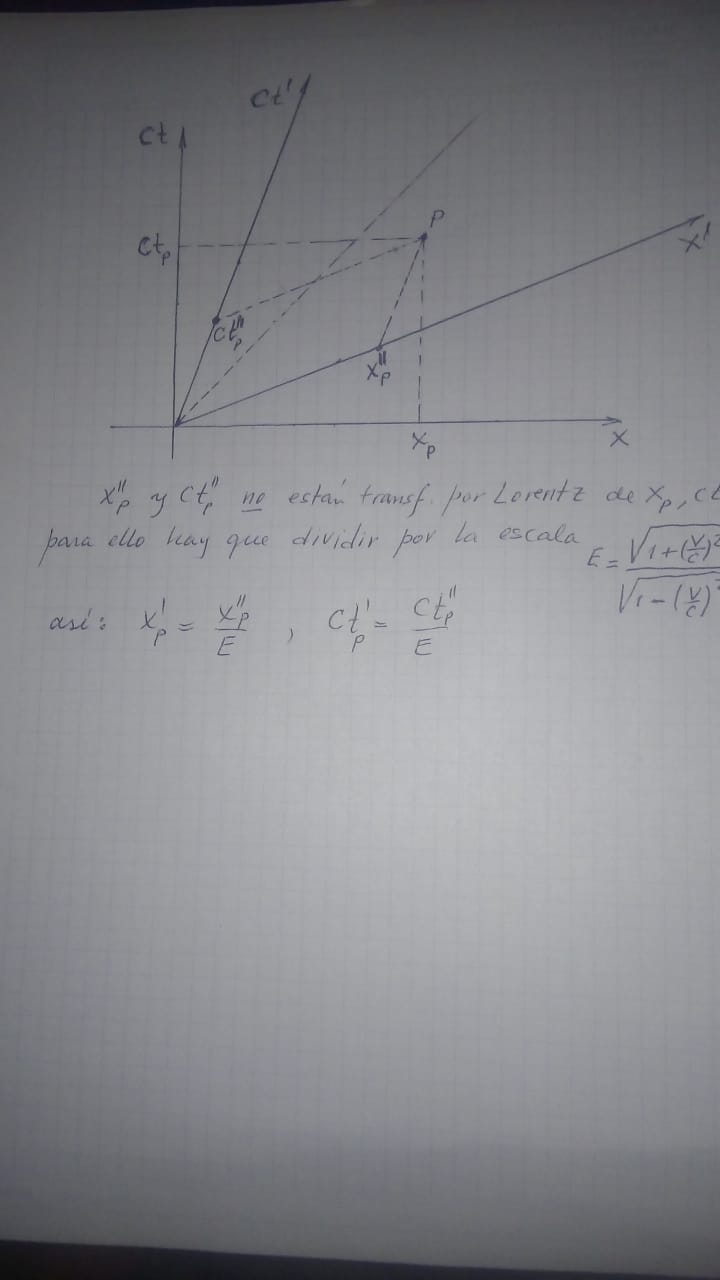 ct'
ct
P
ct_p
x'
ct''_p
x''_p
x_p
x
x''_p y ct''_p no están transf. por Lorentz de x_p, ct
para ello hay que dividir por la escala E = √1+(v/c)² / √1-(v/c)²
así: x'_p = x''_p / E , ct'_p = ct''_p / E